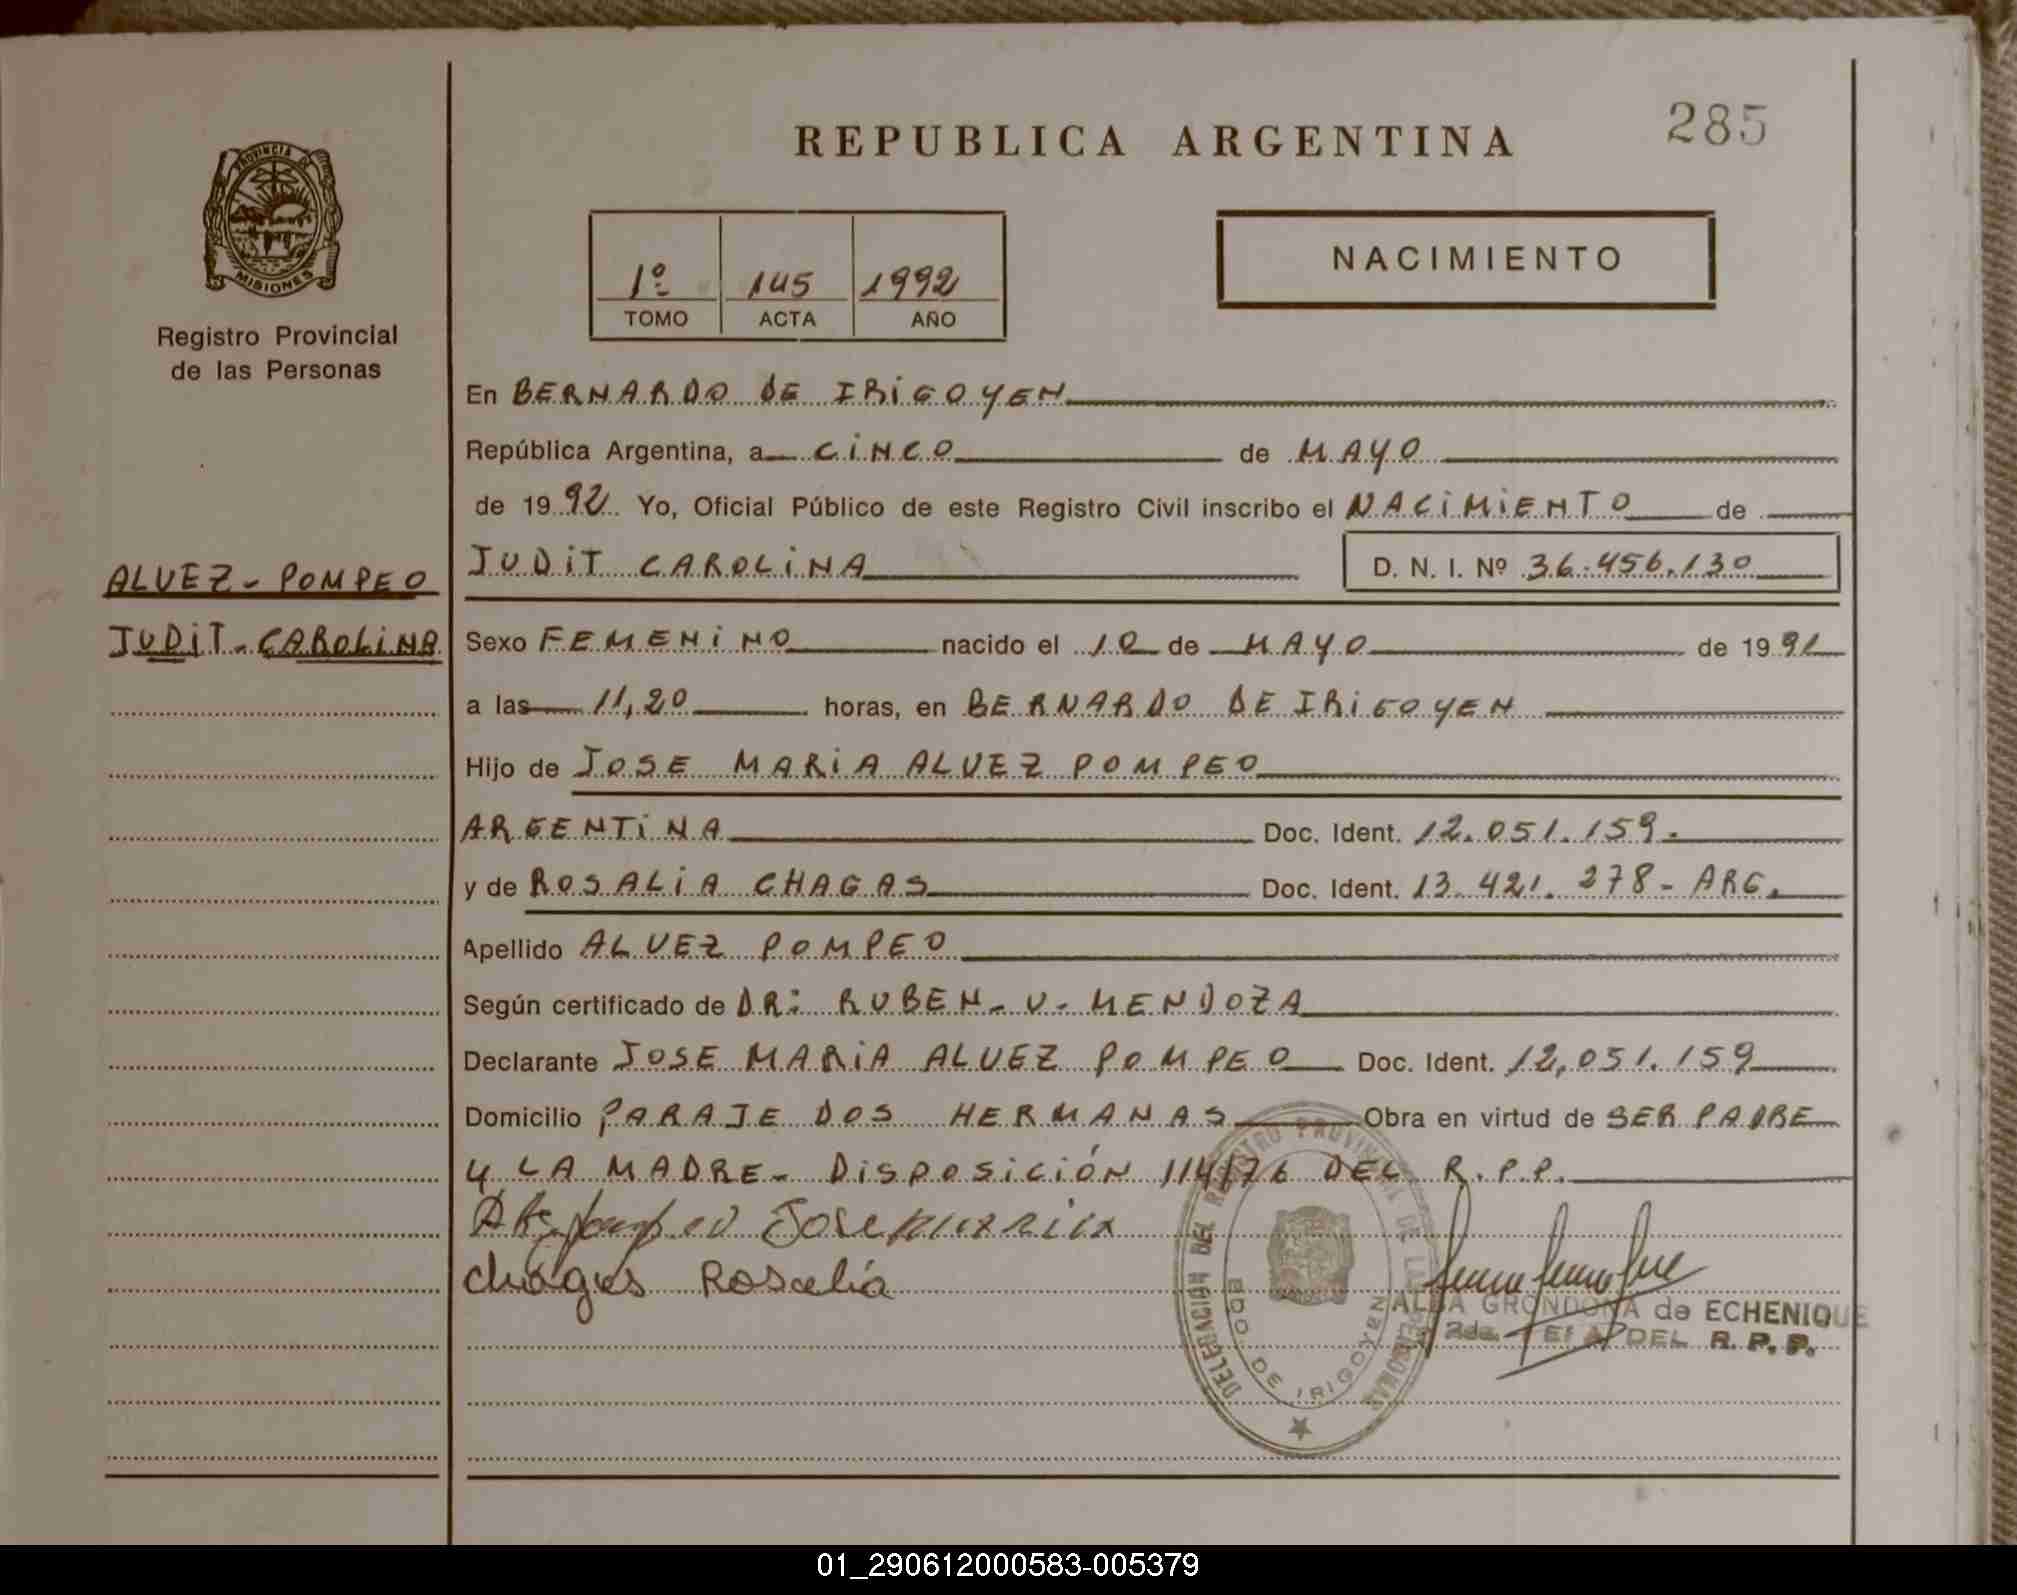 285
REPUBLICA ARGENTINA
PROVINCIA DE
MISIONES
Registro Provincial
de las Personas
1º 145 1992
TOMO ACTA AÑO
NACIMIENTO
En BERNARDO DE IRIGOYEN
República Argentina, a CINCO de MAYO
de 1992 Yo, Oficial Público de este Registro Civil inscribo el NACIMIENTO de
JUDIT CAROLINA D. N. I. Nº 36.456.130
ALVEZ - POMPEO
JUDIT - CAROLINA
Sexo FEMENINO nacido el 10 de MAYO de 1991
a las 11,20 horas, en BERNARDO DE IRIGOYEN
Hijo de JOSE MARIA ALVEZ POMPEO
ARGENTINA Doc. Ident. 12.051.159.
y de ROSALIA CHAGAS Doc. Ident. 13.421.278 - ARG.
Apellido ALVEZ POMPEO
Según certificado de DR: RUBEN - V - MENDOZA
Declarante JOSE MARIA ALVEZ POMPEO Doc. Ident. 12,051.159
Domicilio PARAJE DOS HERMANAS Obra en virtud de SER PADRE
Y LA MADRE - DISPOSICIÓN 114/76 DEL R.P.P.
pompeo Jose maria
chagas Rosalia
DELEGACION DEL REGISTRO PROVINCIAL DE LAS PERSONAS
BDO. DE IRIGOYEN
ALBA GRONDONA de ECHENIQUE
2da. DEL R. P. P.
01_290612000583-005379